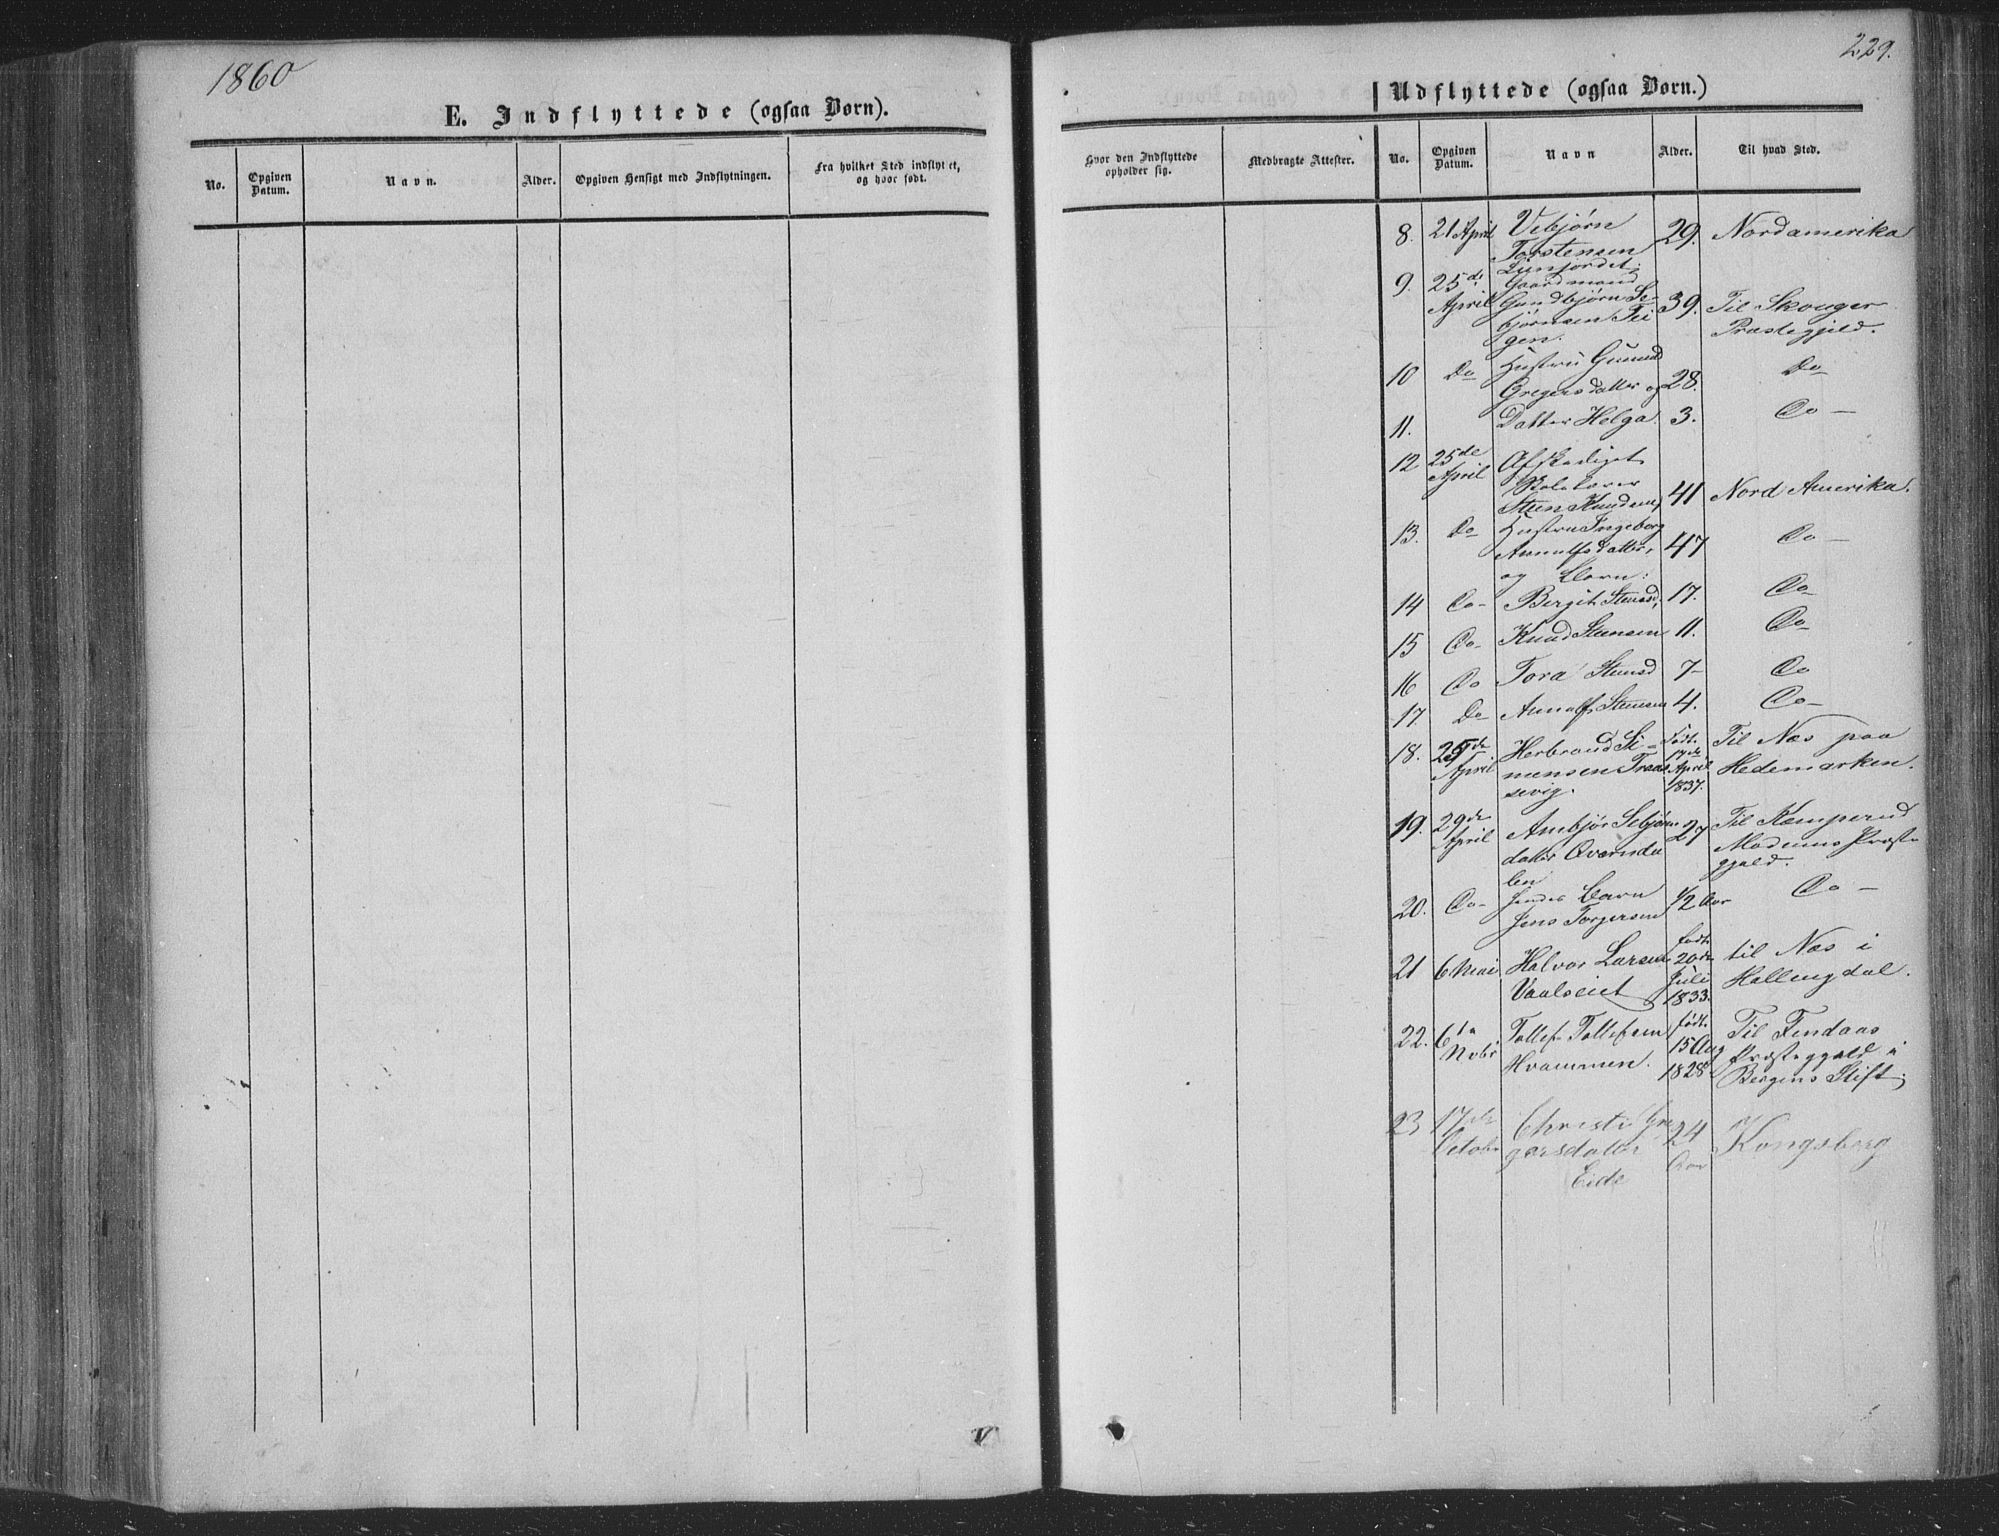 1860
E. Indflyttede (ogsaa Børn).
No.
Opgiven Datum.
Navn.
Alder.
Opgiven Hensigt med Indflytningen.
Fra hvilket Sted indflyttet, og hvor født.
229.
Udflyttede (ogsaa Børn.)
Hvor den Indflyttede opholder sig.
Medbragte Attester.
No.
Opgiven Datum.
Navn
Alder.
Til hvad Sted.
8. 21 April Vebjørn 29. Nordamerika
Torstensen
Lunjordet;
9. 25de Gaardmand
April Gundbjørn Se- 39. Til Skouger
bjørnsen Tei Præstegjeld.
gen.
10 Do Hustru Gunild Do
Gregersdatter og 28.
11. Datter Helga. 3. Do —
12 25de Afskediget
April
Steen Knudsen, 41 Nord Amerika.
13. Do Hustru Ingeborg
Arnulfsdatter, 47 Do —
og Børn:
14 Do- Bergit Steensd, 17. Do
15 Do- Knud Steensen 11. Do
16 Do Tora Steensd 7- Do
17. Do Arnulf Steensen 4. Do-
18. 25de Herbrand Si- født 17de Til Næs paa
April mensen Traa- April Hedemarken.
sevig. 1837.
19. 29de Ambjør Sebjørns 27 Til Kæmperud
April datter Qvernda Modums Præste
len gjeld.
20. Do- hendes Barn 1/2 Aar Do —
Jens Torgersen
21 6 Mai Halvor Larsen født 20de til Næs i
Vaalseiet Juli 1833. Hallingdal.
22. 6te Tollef Tollefsen født Til Findaas
Nobr Hvammen. 15 Aug Præstegjeld i
1828 Bergens Stift;
23 17de Christi Gre 24 Kongsberg
Octobr gersdatter Aar
Eide